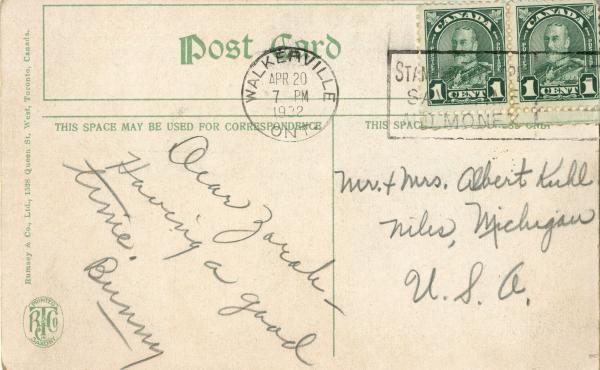 Post Card
CANADA
1 CENT 1
CANADA
1 CENT 1
WALKERVILLE
APR 20
7 PM
1932
ONT
THIS SPACE MAY BE USED FOR CORRESPONDENCE
THIS SPACE ONLY
Dear Zarah-
Having a good
time.
Bunny
Mr. + Mrs. Albert Kuhl
Niles, Michigan
U. S. A.
Rumsey & Co., Ltd., 1538 Queen St, West, Toronto, Canada.